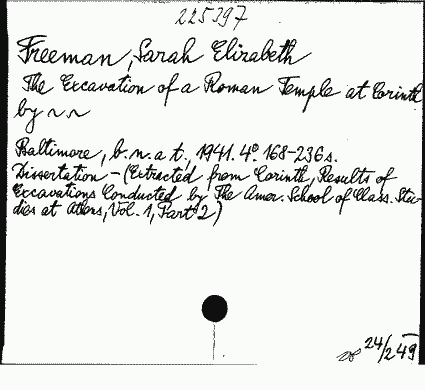 225397
Freeman, Sarah Elizabeth
The Excavation of a Roman Temple at Corinth
by ~ ~
Baltimore, b. n. a t., 1941. 4° 168-236 s.
Dissertation - (Extracted from Corinth, Results of
Excavations Conducted by The Amer. School of Class. Stu-
dies at Athens, Vol. 1, Part 2)
24/249